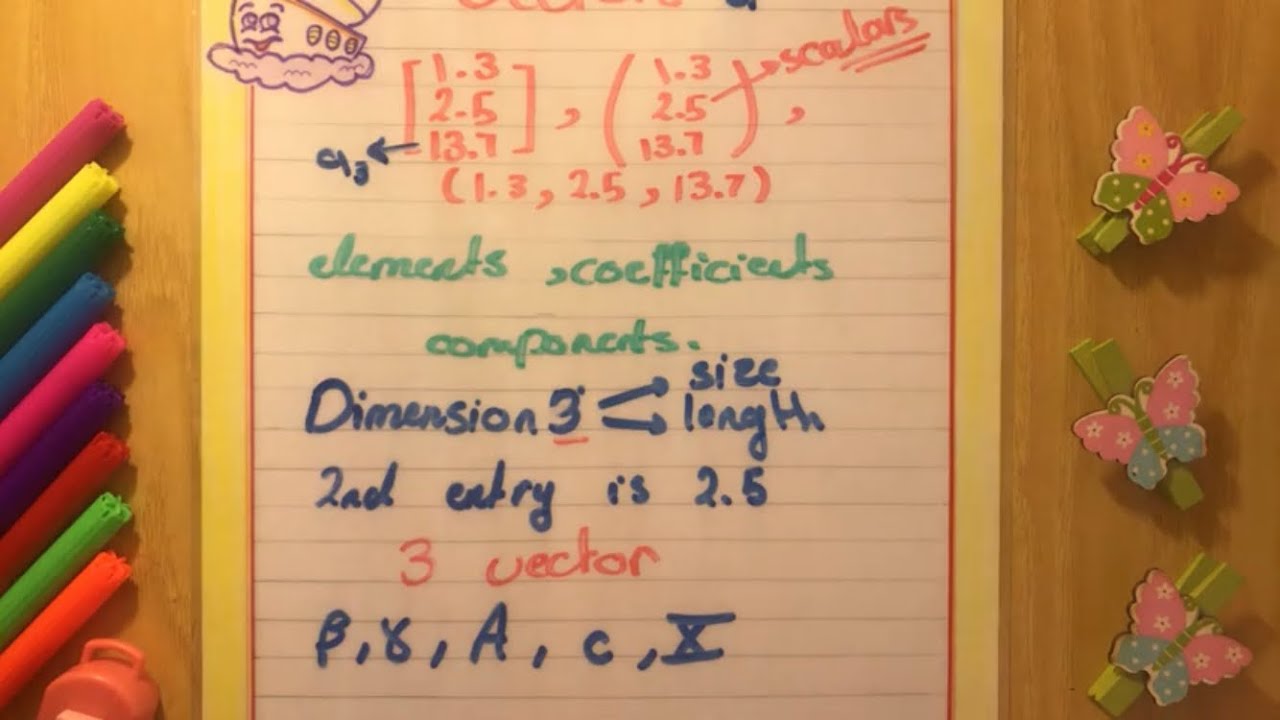 a
[1.3 2.5 13.7], (1.3 2.5 13.7), scalars
a₃
(1.3, 2.5, 13.7)
elements, coefficients
components.
Dimension 3 size length
2nd entry is 2.5
3 vector
β, γ, A, c, X